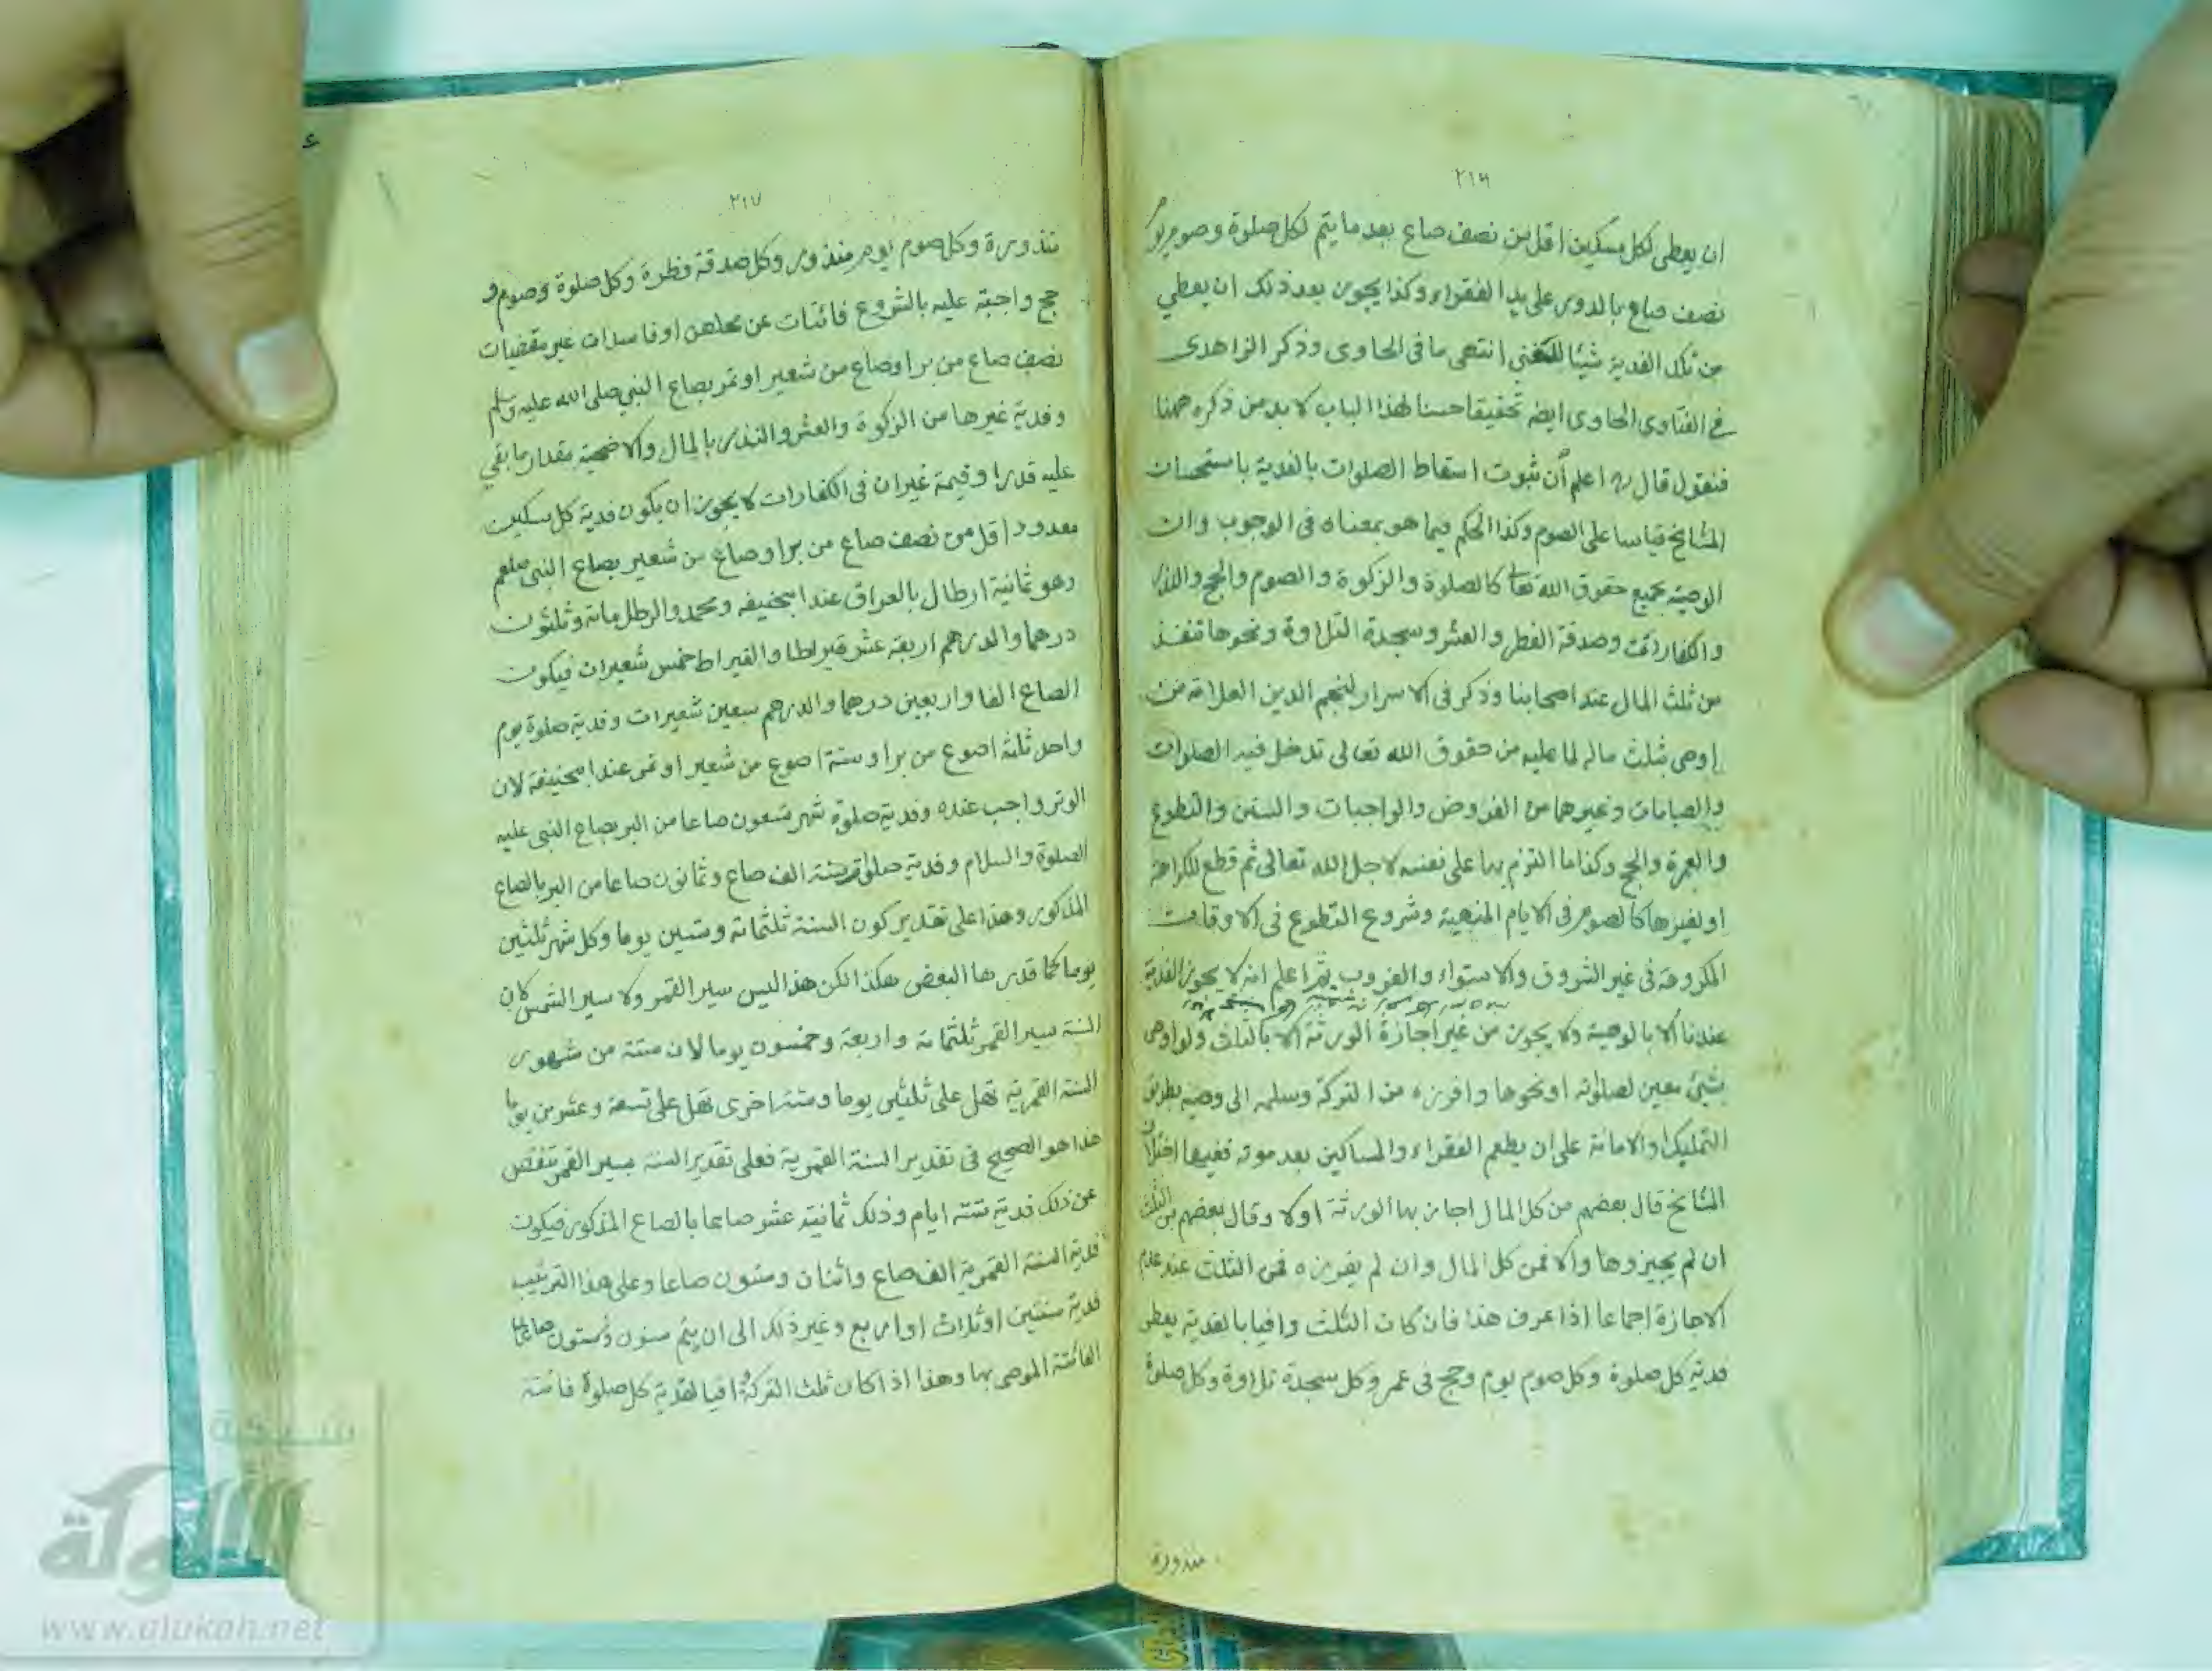 ٢١٦
ان يعطى لكل مسكين اقل من نصف صاع بعد ما يتم لكل صلوة وصوم يوم
نصف صاع بالدور على يد الفقراء وكذا يجوز بعد ذلك ان يعطي
من تلك الفدية شيئا للغني انتهى ما فى الحاوى وذكر الزاهدى
فى الفتاوى الحاوى ايضه تحقيقا حسنا لهذا الباب لا بد من ذكره ههنا
فنقول قال ره اعلم أن ثبوت اسقاط الصلوات بالفدية باستحسان
المشايخ قياسا على الصوم وكذا الحكم فيما هو بمعناه فى الوجوب وان
الوصية بجميع حقوق الله تعالى كالصلوة والزكوة والصوم والحج والنذر
والكفارات وصدقة الفطر والعشر وسجدة التلاوة ونحوها تنفذ
من ثلث المال عند اصحابنا وذكر فى الاسرار لنجم الدين العلامة من
اوصى بثلث ماله لما عليه من حقوق الله تعالى تدخل فيه الصلوات
والصيامات وغيرهما من الفروض والواجبات والسنن والتطوع
والعمرة والحج وكذا ما التزم بها على نفسه لاجل الله تعالى ثم قطع للكراهة
او لغيرها كالصوم فى الايام المنهية وشروع التطوع فى الاوقات
المكروهة فى غير الشروق والاستواء والغروب ثم اعلم انه لا يجوز الفدية
عندنا الا بالوصية ولا يجوز من غير اجازة الورثة الا بالثلث ولو اوصى
بشئ معين لصلوته او نحوها وافرزه من التركة وسلمه الى وصيه بطريق
التمليك او الامانة على ان يطعم الفقراء والمساكين بعد موته ففيها اختلاف
المشايخ قال بعضهم من كل المال اجاز بها الورثة اولا وقال بعضهم من الثلث
ان لم يجيزوها والا فمن كل المال وان لم يفرزه فمن الثلث عند عدم
الاجازة اجماعا اذا عرف هذا فان كان الثلث وافيا بالفدية يعطى
فدية كل صلوة وكل صوم يوم وحج فى عمر وكل سجدة تلاوة وكل صلوة
منذورة
٢١٧
منذورة وكل صوم يوم منذور وكل صدقة فطرة وكل صلوة وصوم و
حج واجبة عليه بالشروع فائتات عن محلهن او فاسدات غير مقضيات
نصف صاع من بر او صاع من شعير او تمر بصاع النبي صلى الله عليه وسلم
وفدية غيرها من الزكوة والعشر والنذر بالمال والاضحية مقدار ما بقي
عليه قدرا وقيمة غير ان فى الكفارات لا يجوز ان يكون فدية كل مسكين
معدود اقل من نصف صاع من بر او صاع من شعير بصاع النبى صلعم
وهو ثمانية ارطال بالعراق عند ابيحنيفه ومحمد والرطل مائة وثلثون
درهما والدرهم اربعة عشر قيراطا والقيراط خمس شعيرات فيكون
الصاع الفا واربعين درهما والدرهم سبعين شعيرات وفدية صلوة يوم
واحد ثلثة اصوع من بر او ستة اصوع من شعير او تمر عند ابيحنيفة لان
الوتر واجب عنده وفدية صلوة شهر تسعون صاعا من البر بصاع النبى عليه
الصلوة والسلام وفدية صلوة سنة الف صاع وثمانون صاعا من البر بالصاع
المذكور وهذا على تقدير كون السنة ثلثمائة وستين يوما وكل شهر ثلثين
يوما كما قدرها البعض هكذا لكن هذا ليس سير القمر ولا سير الشمس لان
السنة سير القمر ثلثمائة واربعة وخمسون يوما لان ستة من شهور
السنة القمرية تهل على ثلثين يوما وستة اخرى تهل على تسعة وعشرين يوما
هذا هو الصحيح فى تقدير السنة القمرية فعلى تقدير السنة بسير القمر تنقص
عن ذلك فدية ستة ايام وذلك ثمانية عشر صاعا بالصاع المذكور فيكون
فدية السنة القمرية الف صاع واثنان وستون صاعا وعلى هذا الترتيب
فدية سنتين او ثلاث او اربع وغير ذلك الى ان يتم سنون
الفائتة الموصى بها وهذا اذا كان ثلث التركة وافيا لفدية كل صلوة فائتة
شبكة
الألوكة
www.alukah.net